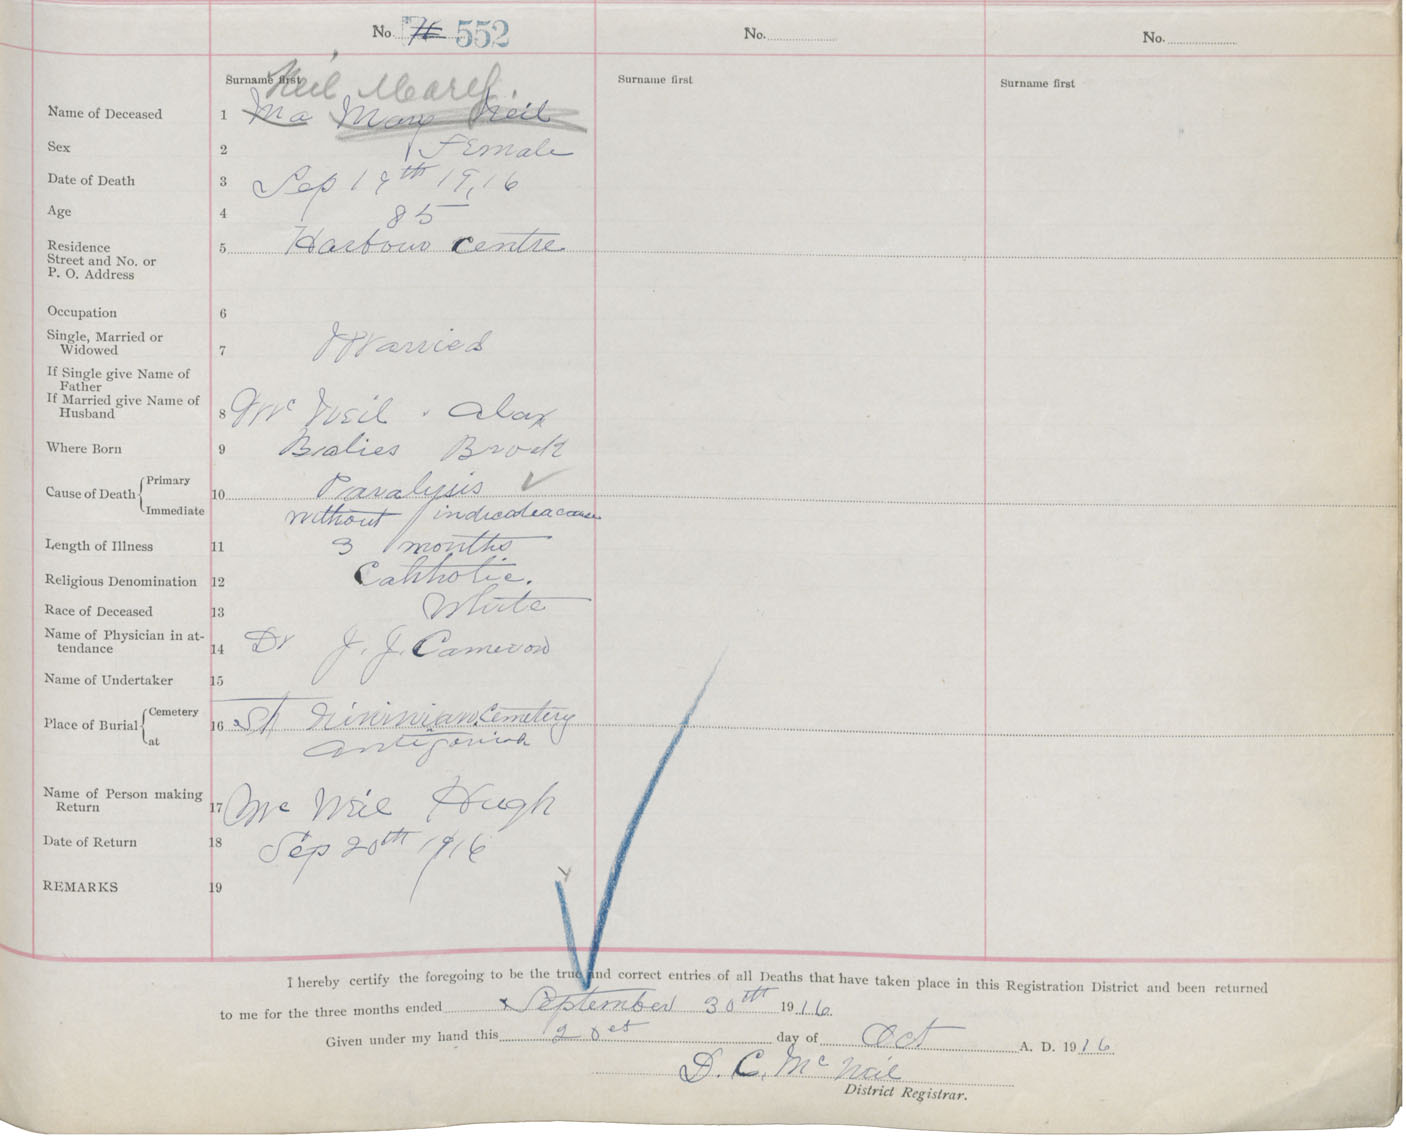 No. 552
No.
No.
Surname first
Surname first
Surname first
Neil Mary
Name of Deceased 1 Ma Mary Neil
Sex 2 Female
Date of Death 3 Sep 19th 1916
Age 4 85
Residence 5 Harbour Centre
Street and No. or
P. O. Address
Occupation 6
Single, Married or
Widowed 7 Married
If Single give Name of
Father
If Married give Name of
Husband 8 McNeil Alax
Where Born 9 Balies Brook
Cause of Death Primary 10 Paralysis
Immediate without indicated cause
Length of Illness 11 3 months
Religious Denomination 12 Cathholic.
Race of Deceased 13 White
Name of Physician in at-
tendance 14 Dr J. J. Cameron
Name of Undertaker 15
Place of Burial Cemetery 16 St Nininian Cemetery
at Antigonish
Name of Person making
Return 17 McNeil Hugh
Date of Return 18 Sep 20th 1916
REMARKS 19
I hereby certify the foregoing to be the true and correct entries of all Deaths that have taken place in this Registration District and been returned
to me for the three months ended September 30th 1916.
Given under my hand this day of Oct A. D. 1916
D. C. McNeil
District Registrar.